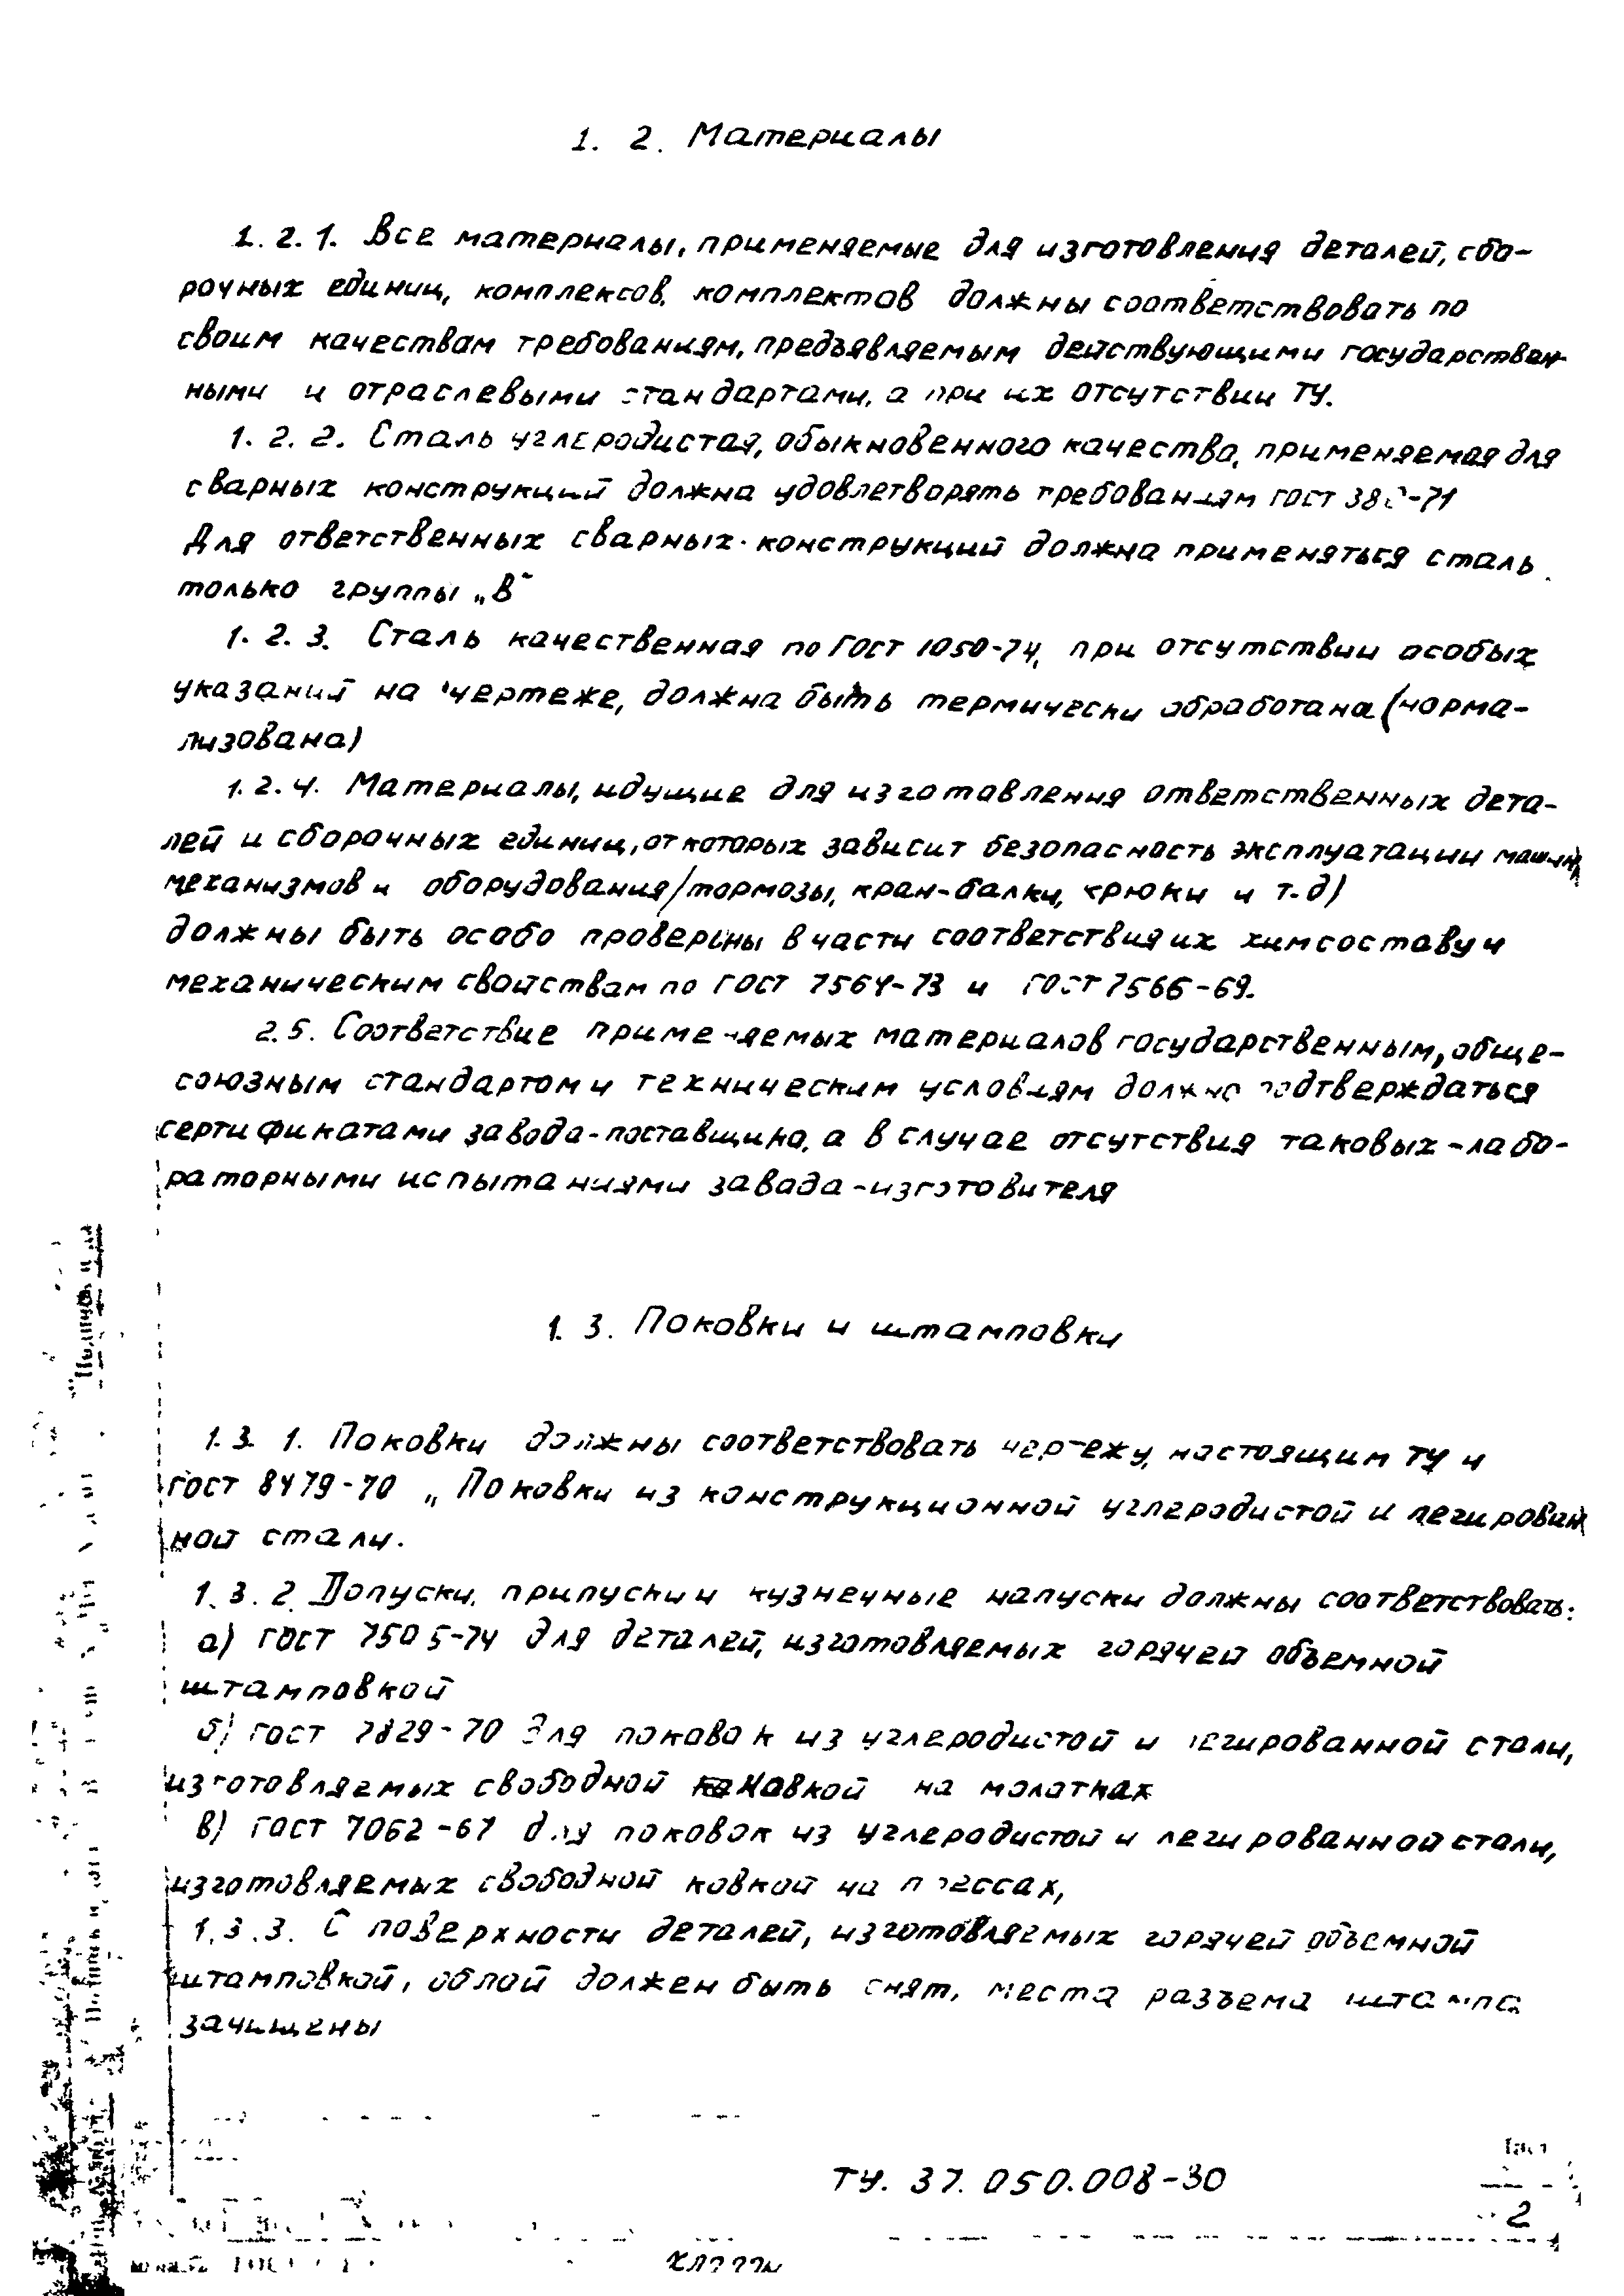 1. 2. Материалы
1. 2. 1. Все материалы, применяемые для изготовления деталей, сбо-
рочных единиц, комплексов, комплектов должны соответствовать по
своим качествам требованиям, предъявляемым действующими государствен-
ными и отраслевыми стандартами, а при их отсутствии ТУ.
1. 2. 2. Сталь углеродистая, обыкновенного качества, применяемая для
сварных конструкций должна удовлетворять требованиям ГОСТ 380-71
Для ответственных сварных конструкций должна применяться сталь
только группы „В“
1. 2. 3. Сталь качественная по ГОСТ 1050-74, при отсутствии особых
указаний на чертеже, должна быть термически обработана (норма-
лизована)
1. 2. 4. Материалы, идущие для изготовления ответственных дета-
лей и сборочных единиц, от которых зависит безопасность эксплуатации машин,
механизмов и оборудования /тормозы, кран-балки, крюки и т.д)
должны быть особо проверены в части соответствия их химсоставу и
механическим свойствам по ГОСТ 7564-73 и ГОСТ 7566-69.
2. 5. Соответствие применяемых материалов государственным, обще-
союзным стандартом и техническим условиям должно подтверждаться
сертификатами завода-поставщика, а в случае отсутствия таковых - лабо-
раторными испытаниями завода-изготовителя
1. 3. Поковки и штамповки
1. 3. 1. Поковки должны соответствовать чертежу, настоящим ТУ и
ГОСТ 8479-70 „Поковки из конструкционной углеродистой и легирован
ной стали.
1. 3. 2. Допуски, припуски и кузнечные напуски должны соответствовать:
а) ГОСТ 7505-74 для деталей, изготовляемых горячей объемной
штамповкой
б) ГОСТ 7829-70 для поковок из углеродистой и легированной стали,
изготовляемых свободной ковкой на молотках
в) ГОСТ 7062-67 для поковок из углеродистой и легированной стали,
изготовляемых свободной ковкой на прессах,
1. 3. 3. С поверхности деталей, изготовляемых горячей объемной
штамповкой, облой должен быть снят, места разъема штампа
зачищены
Лист
ТУ. 37. 050.008-80
2